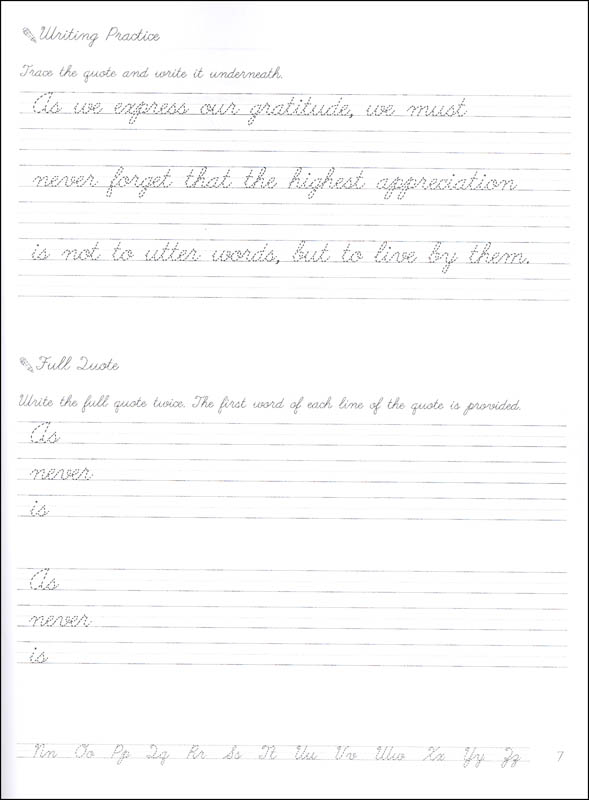 Writing Practice
Trace the quote and write it underneath.
As we express our gratitude, we must
never forget that the highest appreciation
is not to utter words, but to live by them.
Full Quote
Write the full quote twice. The first word of each line of the quote is provided.
As
never
is
As
never
is
Nn Oo Pp Qq Rr Ss Tt Uu Vv Ww Xx Yy Zz 7